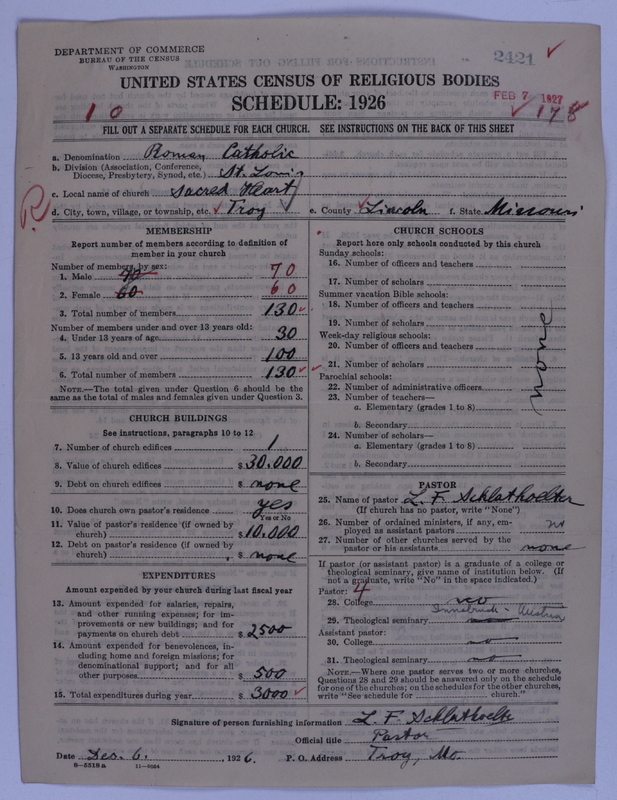 DEPARTMENT OF COMMERCE
BUREAU OF THE CENSUS
WASHINGTON
2421 ✓
UNITED STATES CENSUS OF RELIGIOUS BODIES
SCHEDULE: 1926
FEB 7 1927
10
✓ 178
FILL OUT A SEPARATE SCHEDULE FOR EACH CHURCH. SEE INSTRUCTIONS ON THE BACK OF THIS SHEET
a. Denomination Roman Catholic
b. Division (Association, Conference, Diocese, Presbytery, Synod, etc.) St. Louis
c. Local name of church Sacred Heart
R
d. City, town, village, or township, etc. Troy e. County Lincoln f. State Missouri
MEMBERSHIP
Report number of members according to definition of member in your church
Number of members by sex:
1. Male 70 70
2. Female 60 60
3. Total number of members 130
Number of members under and over 13 years old:
4. Under 13 years of age 30
5. 13 years old and over 100
6. Total number of members 130
NOTE.—The total given under Question 6 should be the same as the total of males and females given under Question 3.
CHURCH BUILDINGS
See instructions, paragraphs 10 to 12
7. Number of church edifices 1
8. Value of church edifices $ 30.000
9. Debt on church edifices $ none
10. Does church own pastor's residence yes
Yes or No
11. Value of pastor's residence (if owned by church) $ 10.000
12. Debt on pastor's residence (if owned by church) $ none
EXPENDITURES
Amount expended by your church during last fiscal year
13. Amount expended for salaries, repairs, and other running expenses; for improvements or new buildings; and for payments on church debt $ 2500
14. Amount expended for benevolences, including home and foreign missions; for denominational support; and for all other purposes $ 500
15. Total expenditures during year $ 3000
CHURCH SCHOOLS
Report here only schools conducted by this church
Sunday schools:
16. Number of officers and teachers
17. Number of scholars
Summer vacation Bible schools:
18. Number of officers and teachers
19. Number of scholars
Week-day religious schools:
20. Number of officers and teachers
21. Number of scholars
Parochial schools:
22. Number of administrative officers
23. Number of teachers—
a. Elementary (grades 1 to 8)
b. Secondary
24. Number of scholars—
a. Elementary (grades 1 to 8)
b. Secondary
none
PASTOR
25. Name of pastor L. F. Schlathoelter
(If church has no pastor, write "None")
26. Number of ordained ministers, if any, employed as assistant pastors no
27. Number of other churches served by the pastor or his assistants none
If pastor (or assistant pastor) is a graduate of a college or theological seminary, give name of institution below. (If not a graduate, write "No" in the space indicated.)
Pastor: 4
28. College no
Innsbruck - Austria
29. Theological seminary
Assistant pastor:
30. College no
31. Theological seminary no
NOTE.—Where one pastor serves two or more churches, Questions 28 and 29 should be answered only on the schedule for one of the churches; on the schedules for the other churches, write "See schedule for church."
Signature of person furnishing information L. F. Schlathoelter
Official title Pastor
Date Dec. 6, 1926. P. O. Address Troy, Mo.
8—5518a